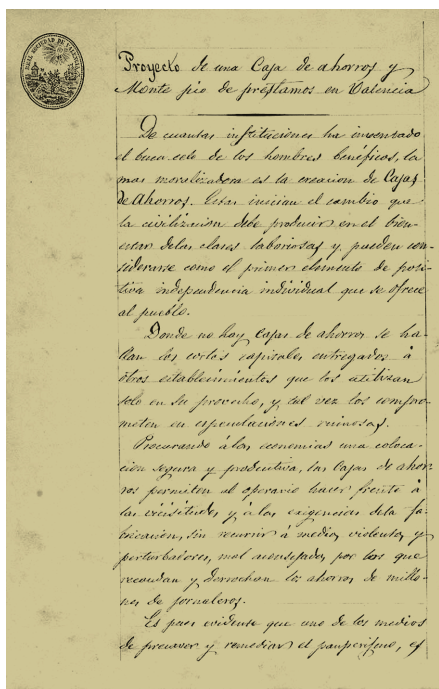 REAL SOCIEDAD DE VALENCIA
Proyecto de una Caja de ahorros y
Monte pio de préstamos en Valencia
De cuantas instituciones ha inventado
el buen celo de los hombres benéficos, la
mas moralizadora es la creacion de Cajas
de Ahorros. Estas inician el cambio que
la civilizacion debe producir en el bien-
estar de las clases laboriosas y, pueden con-
siderarse como el primer elemento de posi-
tiva independencia individual que se ofrece
al pueblo.
Donde no hay Cajas de ahorros se ha-
llan los cortos capitales entregados á
otros establecimientos que los utilizan
solo en su provecho, y tal vez los compro-
meten en especulaciones ruinosas.
Procurando á las economias una coloca-
cion segura y productiva, las Cajas de ahor-
ros permiten al operario hacer frente á
las vicisitudes y á las exigencias de la fa-
bricacion, sin recurrir á medios violentos y
perturbadores, mal aconsejados por los que
recaudan y derrochan los ahorros de millo-
nes de jornaleros.
Es pues evidente que uno de los medios
de precaver y remediar el pauperismo, es